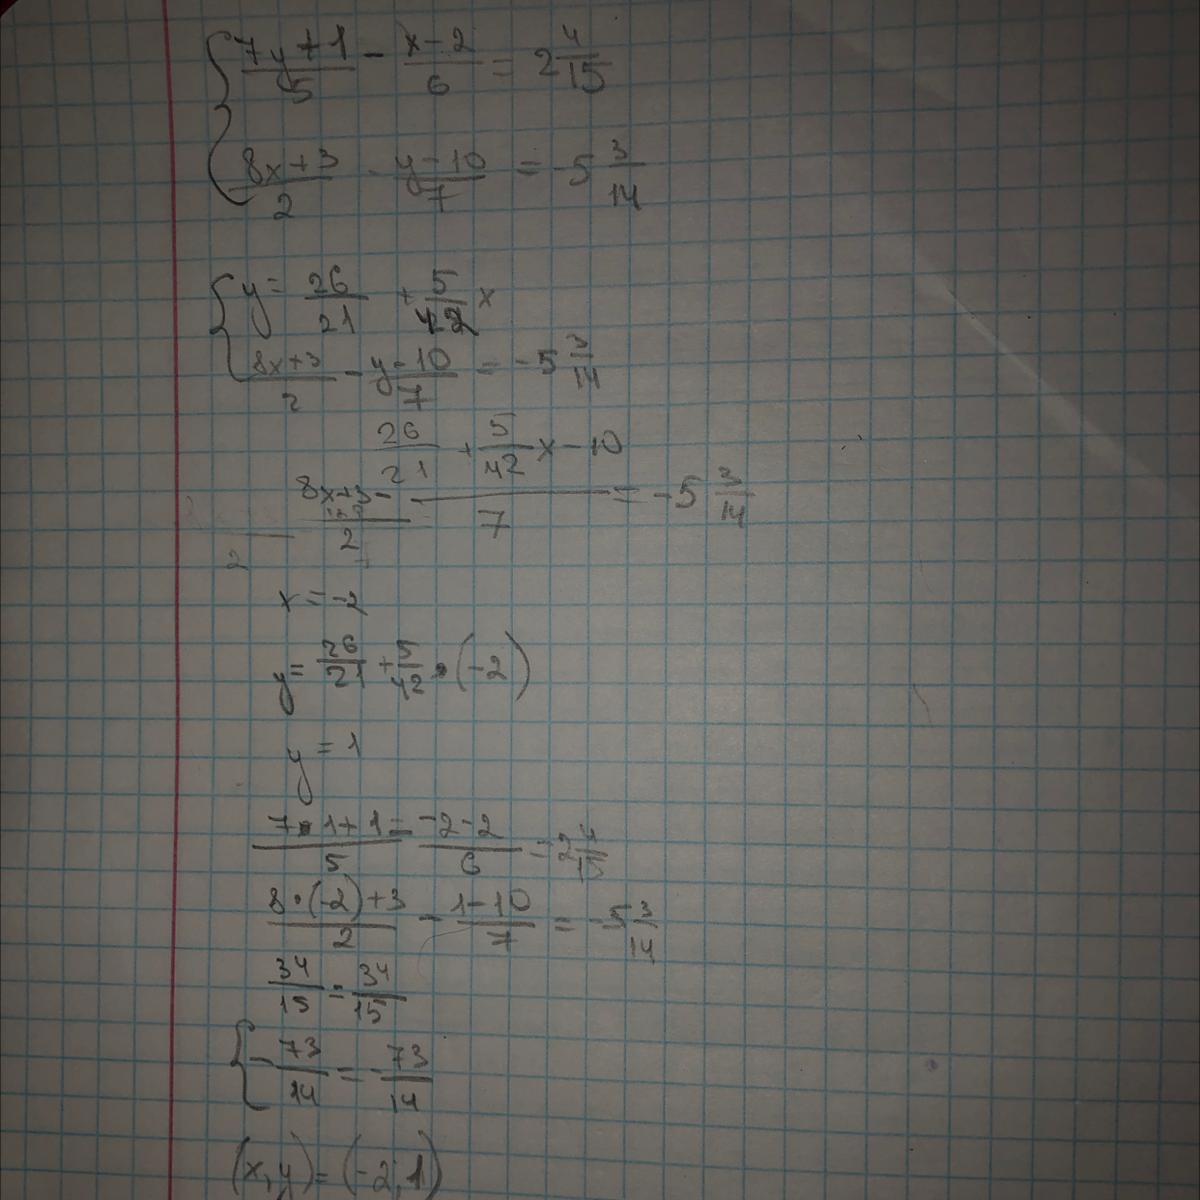 { (7y+1)/5 - (x-2)/6 = 2 4/15
(8x+3)/2 - (y-10)/7 = -5 3/14
{ y = 26/21 + 5/42 x
(8x+3)/2 - (y-10)/7 = -5 3/14
(8x+3)/2 - (26/21 + 5/42 x - 10)/7 = -5 3/14
x = -2
y = 26/21 + 5/42 • (-2)
y = 1
(7•1+1)/5 - (-2-2)/6 = 2 4/15
(8•(-2)+3)/2 - (1-10)/7 = -5 3/14
34/15 = 34/15
{ -73/14 = -73/14
(x,y) = (-2,1)